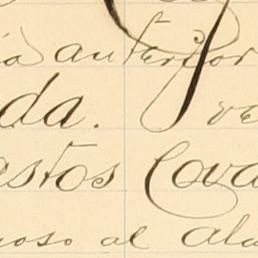 ia anterior
da. ve
estos Cova
uoso al Ala